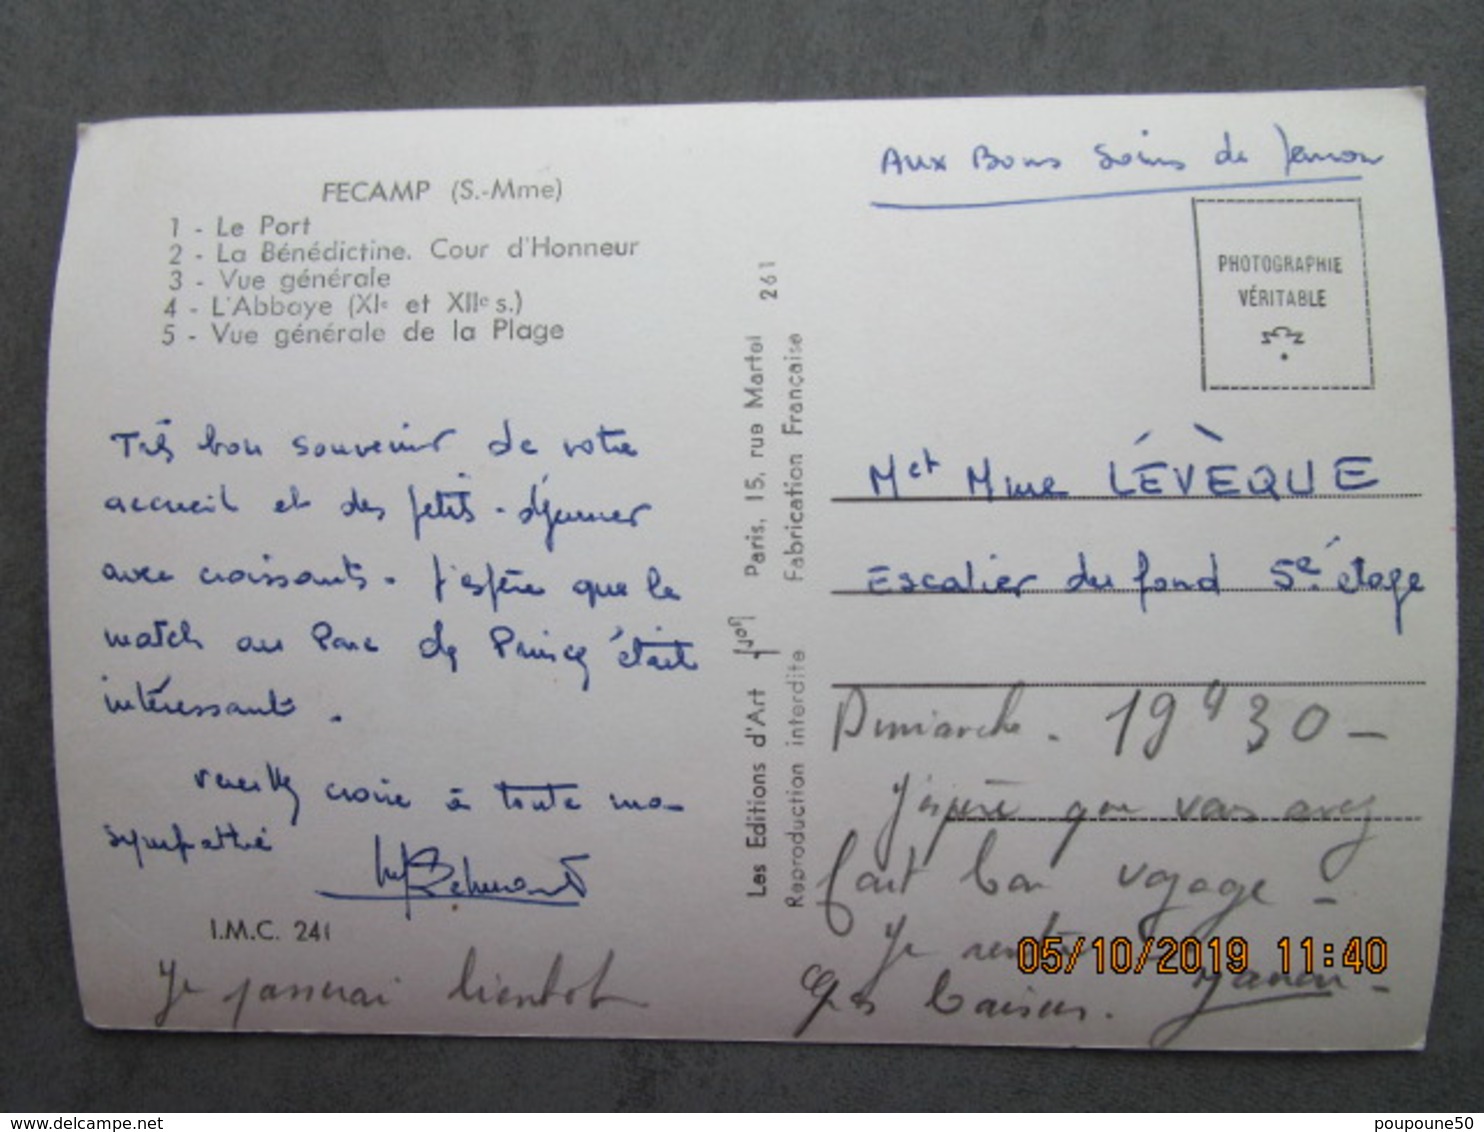 Aux Bons Soins de
FECAMP (S.-Mme)
1 - Le Port
2 - La Bénédictine. Cour d'Honneur
3 - Vue générale
4 - L'Abbaye (XIe et XIIe s.)
5 - Vue générale de la Plage
Très bon souvenir de votre
accueil et des petits-déjeuner
avec croissants. J'espère que le
match au Parc des Princes était
intéressant.
Veuillez croire à toute ma
sympathie
I.M.C. 241
Je passerai bientôt
Les Editions d'Art Yvon Paris, 15, rue Martel 261
Reproduction interdite Fabrication Française
PHOTOGRAPHIE
VÉRITABLE
M et Mme LÉVÈQUE
Escalier du fond 5e étage
Dimanche. 19h30 -
J'espère que vous avez
fait bon voyage -
Je
Gros baisers.
05/10/2019 11:40
poupoune50